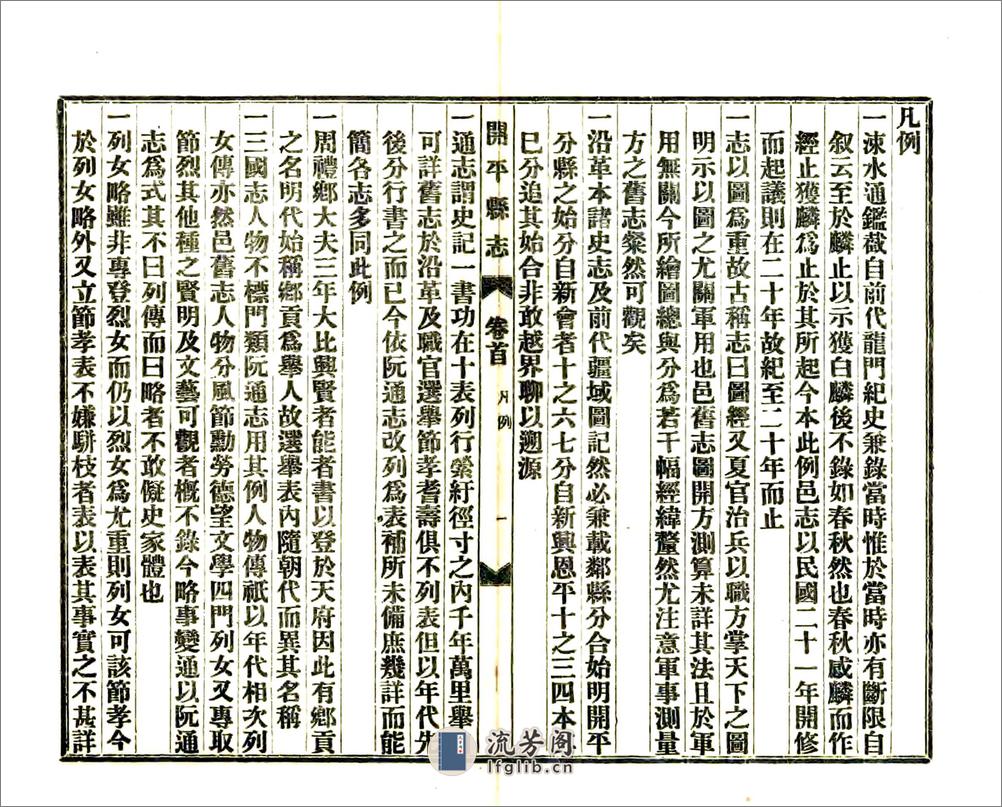 凡例
一涑水通鑑截自前代龍門紀史兼錄當時惟於當時亦有斷限自
叙云至於麟止以示獲白麟後不錄如春秋然也春秋感麟而作
經止獲麟為止於其所起今本此例邑志以民國二十一年開修
而起議則在二十年故紀至二十年而止
一志以圖為重故古稱志曰圖經又夏官治兵以職方掌天下之圖
明示以圖之尤關軍用也邑舊志圖開方測算未詳其法且於軍
用無關今所繪圖總與分為若干幅經緯釐然尤注意軍事測量
方之舊志粲然可觀矣
一沿革本諸史志及前代疆域圖記然必兼載鄰縣分合始明開平
分縣之始分自新會者十之六七分自新興恩平十之三四本
已分追其始合非敢越界聊以遡源
開平縣志 卷首 凡例 一
一通志謂史記一書功在十表列行縈紆徑寸之內千年萬里舉
可詳舊志於沿革及職官選舉節孝耆壽俱不列表但以年代先
後分行書之而已今依阮通志改列為表補所未備庶幾詳而能
簡各志多同此例
一周禮鄉大夫三年大比興賢者能者書以登於天府因此有鄉貢
之名明代始稱鄉貢為舉人故選舉表內隨朝代而異其名稱
一三國志人物不標門類阮通志用其例人物傳祇以年代相次列
女傳亦然邑舊志人物分風節勳勞德望文學四門列女又專取
節烈其他種之賢明及文藝可觀者概不錄今略事變通以阮通
志為式其不曰列傳而曰略者不敢儗史家體也
一列女略雖非專登烈女而仍以烈女為尤重則列女可該節孝今
於列女略外又立節孝表不嫌駢枝者表以表其事實之不甚詳
流芳阁
lfglib.cn